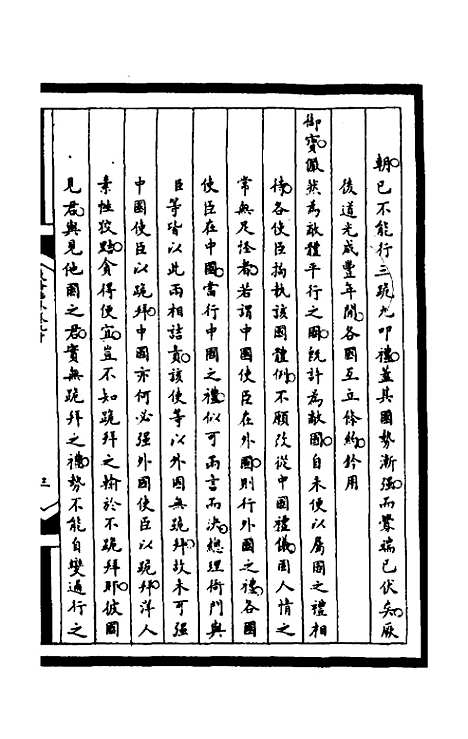 朝已不能行三跪九叩禮蓋其國勢漸强而釁端已伏矣厥
後道光咸豐年間各國互立條約鈐用
御寶儼然為敵體平行之國旣計為敵國自未便以屬國之禮相
待各使臣搞執該國體例不願改從中國禮儀固人情之
常無足怪者若謂中國使臣在外國則行外國之禮各國
使臣在中國當行中國之禮似可兩言而决總理衙門與
臣等皆以此兩相詰責該使等以外國無跪拜故未可强
中國使臣以跪拜中國亦何必强外國使臣以跪拜洋人
素性狡黠貪得便宜豈不知跪拜之輸於不跪拜耶彼國
見君與見他國之君實無跪拜之禮勢不能自變通行之
三